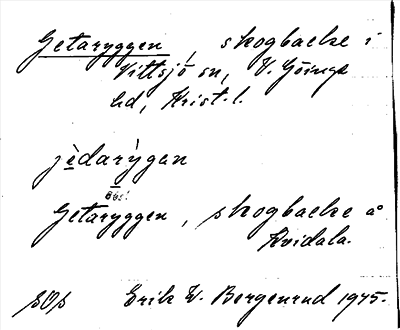 Getaryggen, skogbacke i
Vittsjö sn, V. Göinge
hd, Krist. l.
jèdarỳgan
Obs!
Getaryggen, skogbacke å
Kvidala.
SOS Erik W. Bergenrud 1945.